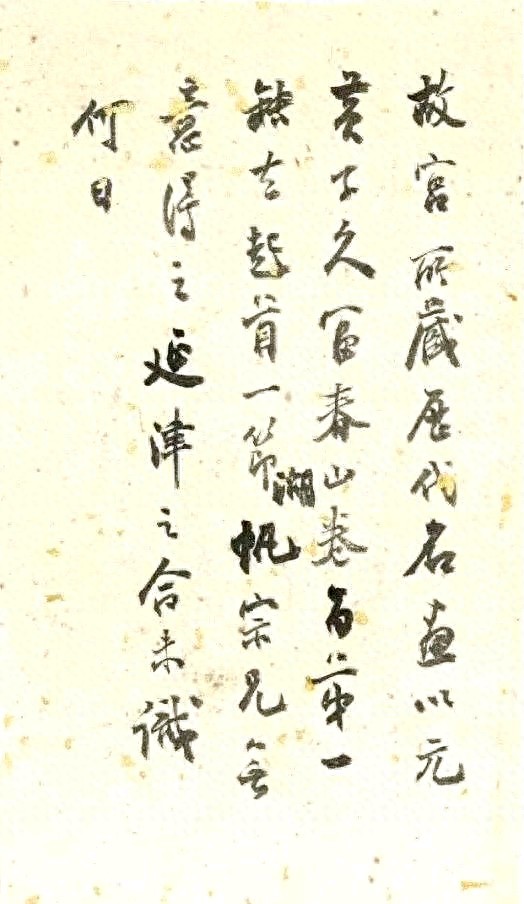 故宮所藏歷代名畫以元
黃子久富春山卷為第一
然亡起首一節湖帆宗兄無
意得之延津之合未識
何日